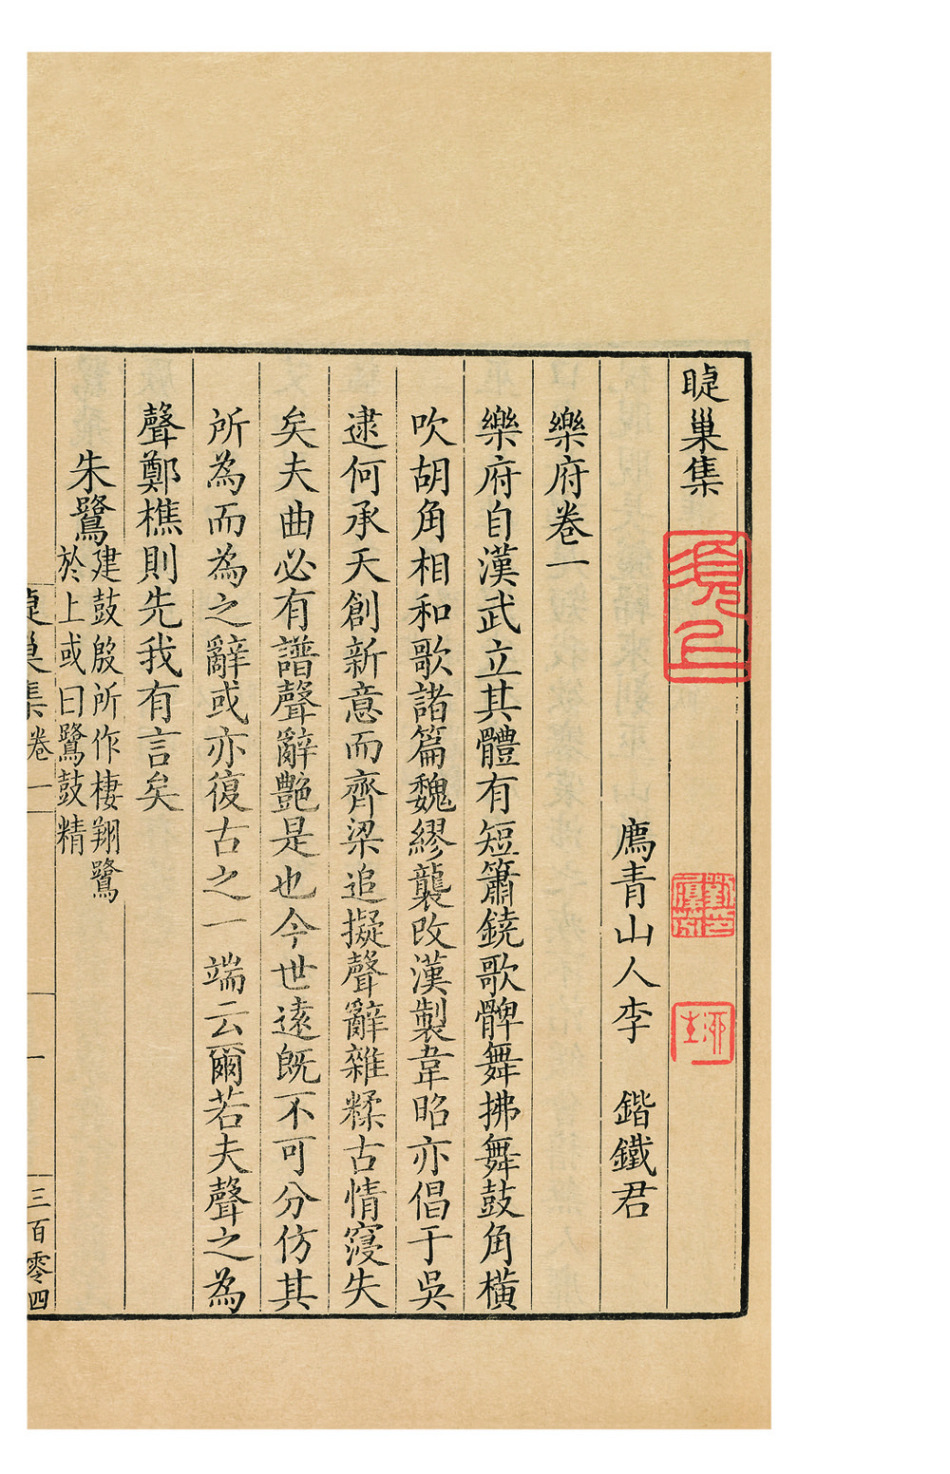 睫巢集
廌青山人李 鍇鐵君
樂府卷一
樂府自漢武立其體有短簫鐃歌鞞舞拂舞鼓角橫
吹胡角相和歌諸篇魏繆襲改漢製韋昭亦倡于吳
逮何承天創新意而齊梁追擬聲辭雜糅古情寖失
矣夫曲必有譜聲辭艷是也今世遠既不可分仿其
所為而為之辭或亦復古之一端云爾若夫聲之為
聲鄭樵則先我有言矣
朱鷺 建鼓殷所作棲翔鷺
於上或曰鷺鼓精
睫巢集 卷一 一 三百零四